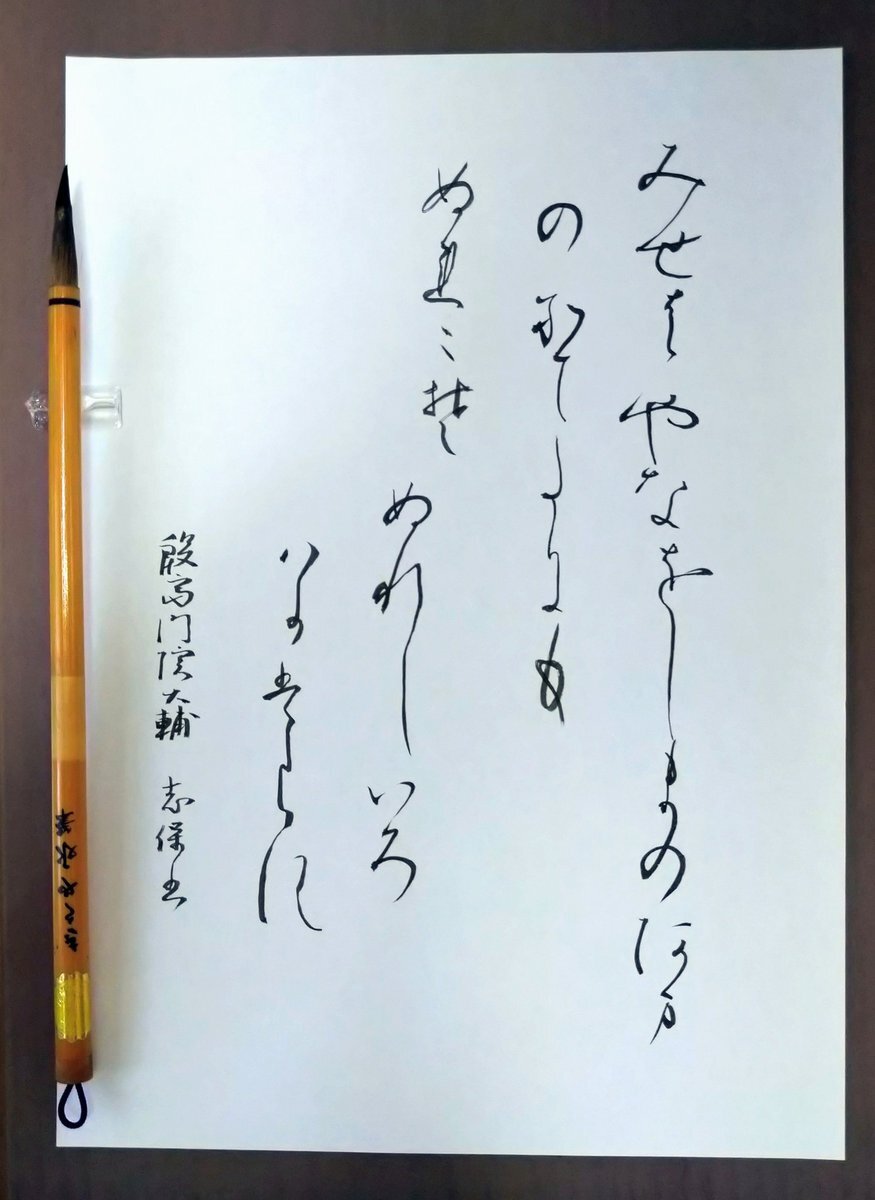 みせはやなをしまのあま
のそてたにも
ぬれにそ
ぬれしいろ
はかはらす
殷富門院大輔 志保書